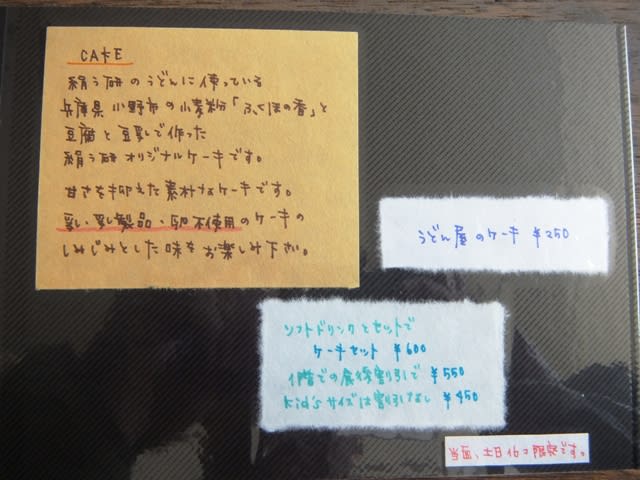 CAFE
絹う研のうどんに使っている
兵庫県小野市の小麦粉「ふくほの香」と
豆腐と豆乳で作った
絹う研オリジナルケーキです。
甘さを抑えた素朴なケーキです。
乳・乳製品・卵不使用のケーキの
しみじみとした味をお楽しみ下さい。
うどん屋のケーキ ¥250
ソフトドリンクとセットで
ケーキセット ¥600
1階での食後割引で ¥550
Kid'sサイズは割引なし ¥450
当面、土日16コ限定です。